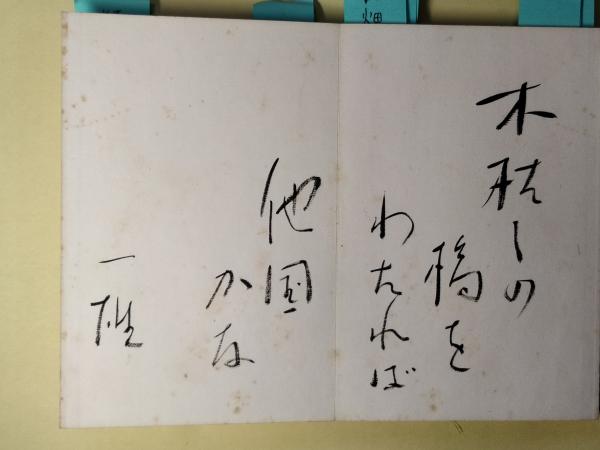 木枯しの
橋を
わたれば
他国
かな
一雄
畑